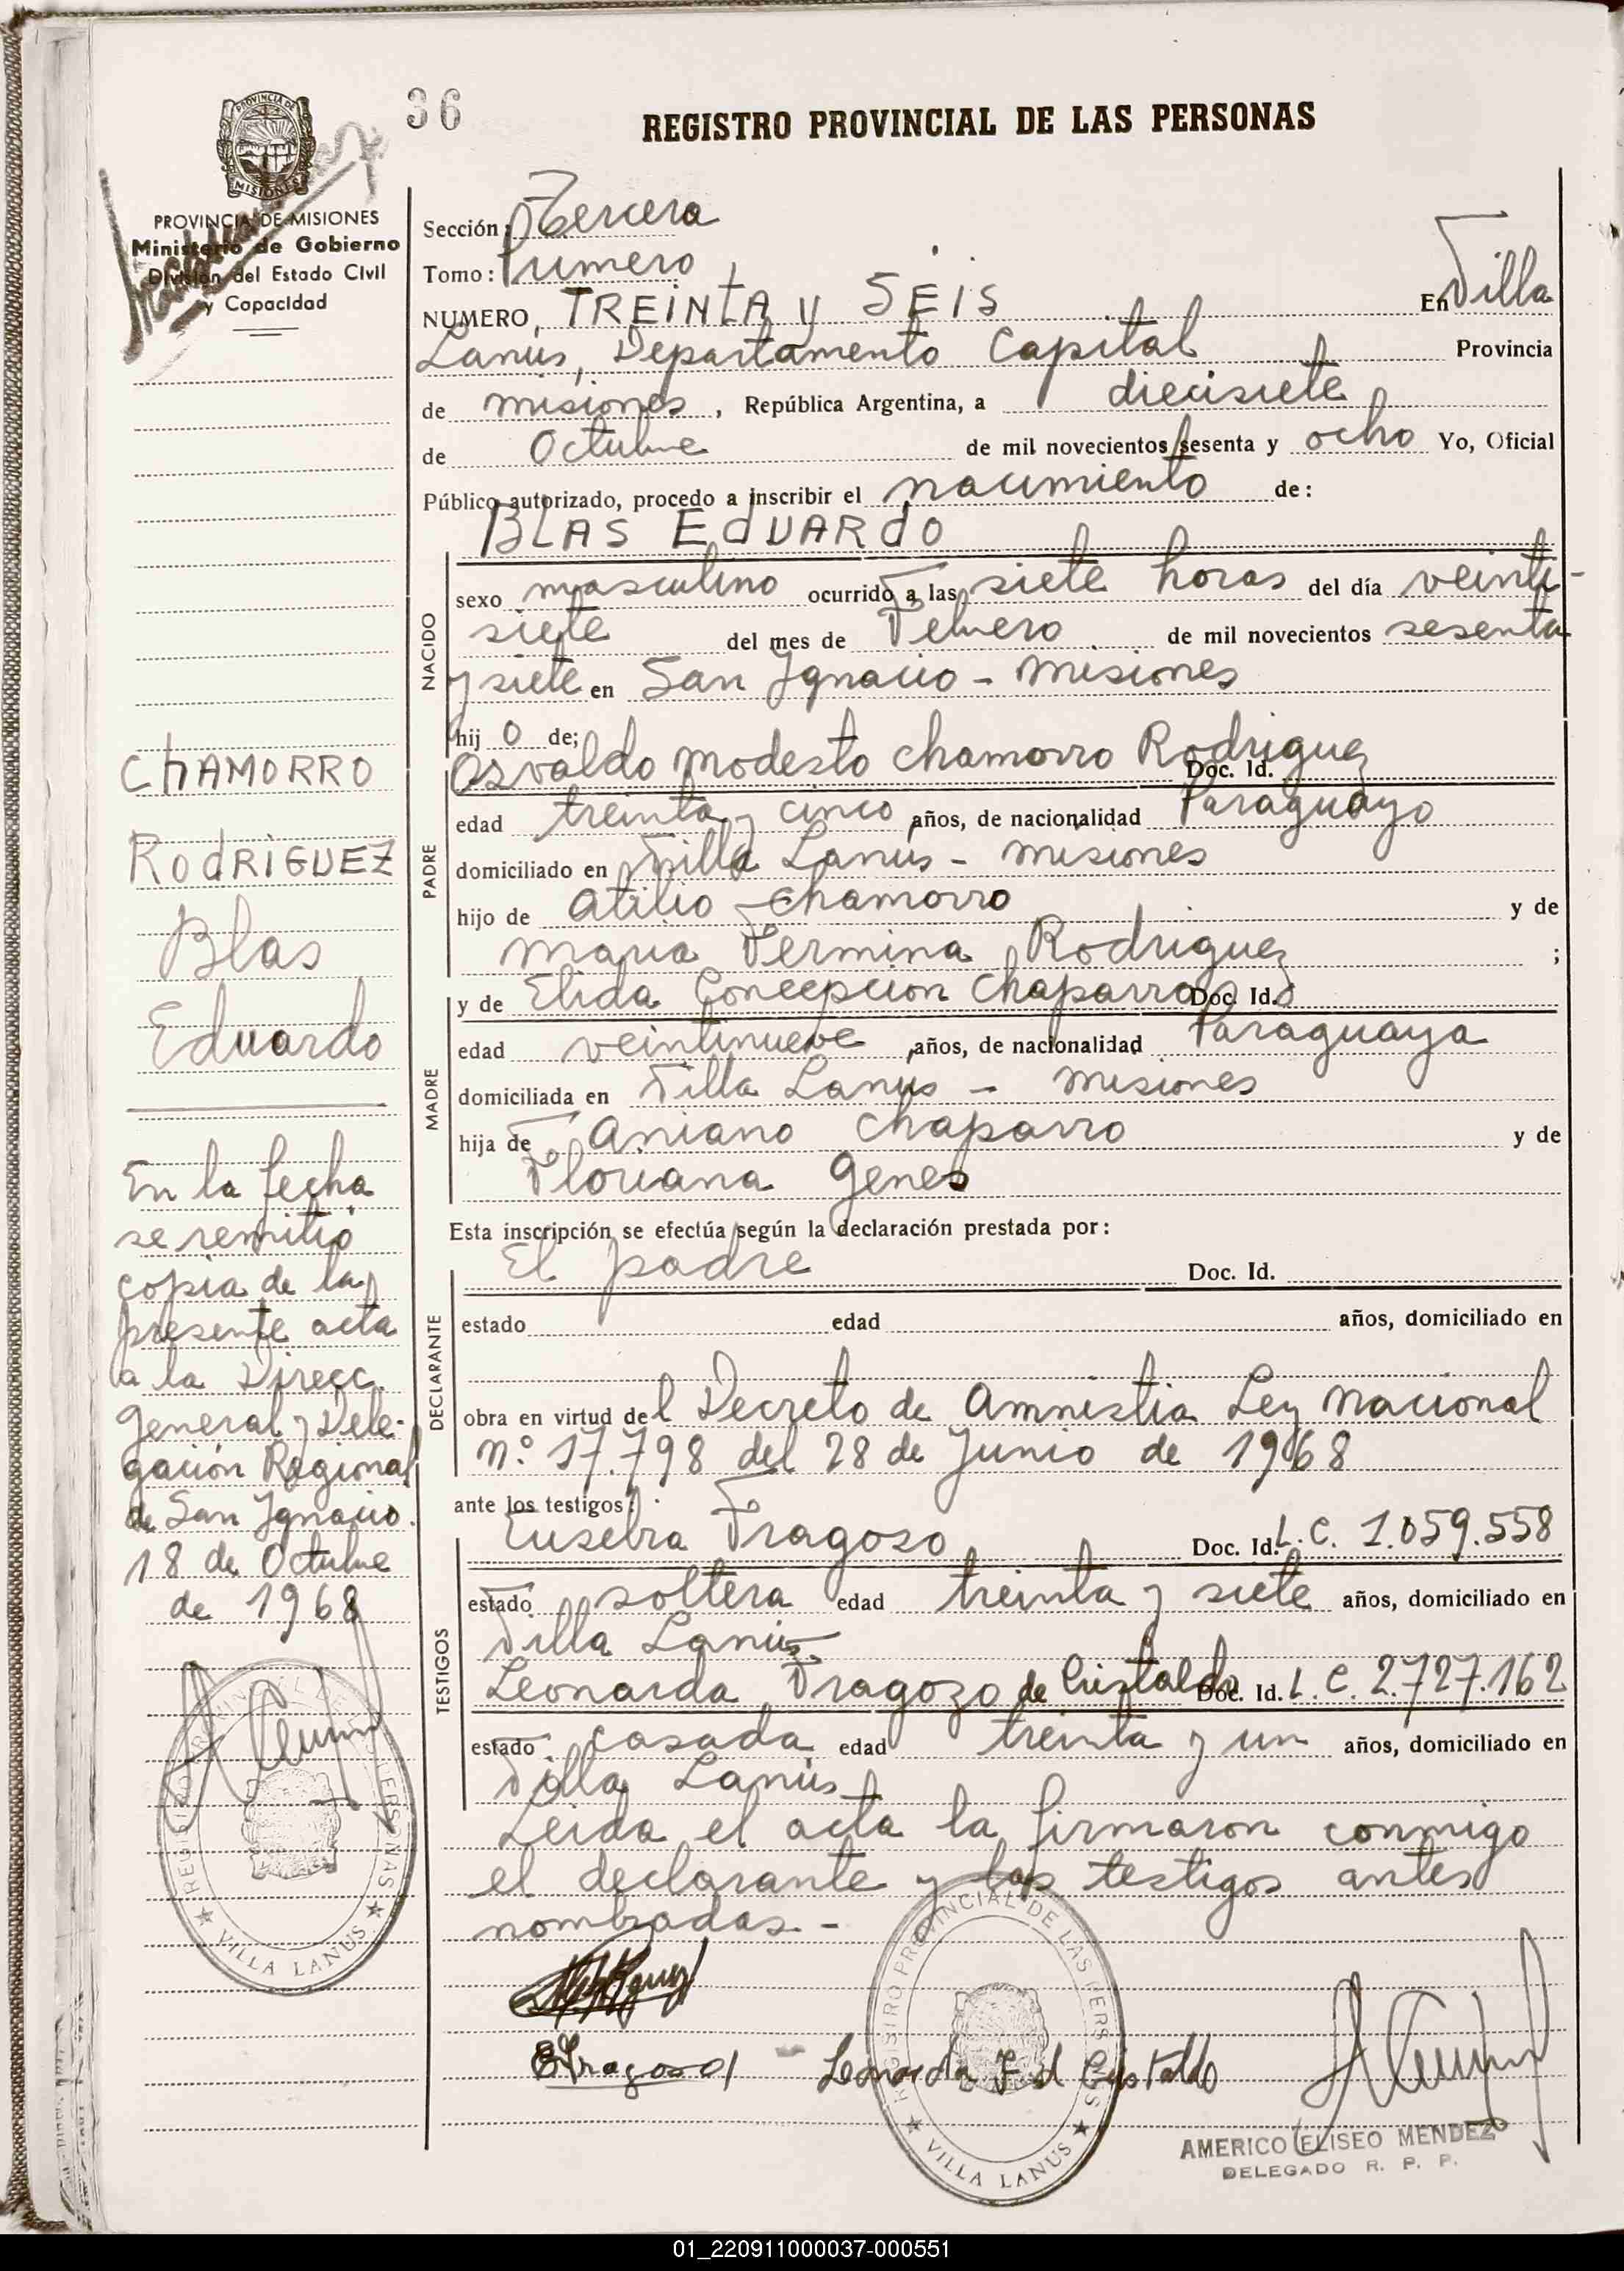 36
REGISTRO PROVINCIAL DE LAS PERSONAS
PROVINCIA DE
MISIONES
PROVINCIA DE MISIONES
Ministerio de Gobierno
División del Estado Civil
y Capacidad
Sección: Tercera
Tomo: Primero
NUMERO, TREINTA y SEIS En Villa
Lanús, Departamento Capital Provincia
de misiones, República Argentina, a diecisiete
de Octubre de mil novecientos sesenta y ocho Yo, Oficial
Público autorizado, procedo a inscribir el nacimiento de:
BLAS EdUARdO
NACIDO
sexo masculino ocurrido a las siete horas del día veinti-
siete del mes de Febrero de mil novecientos sesenta
y siete en San Ignacio - misiones
hij o de;
Osvaldo Modesto Chamorro Rodriguez Doc. Id.
PADRE
edad treinta y cinco años, de nacionalidad Paraguayo
domiciliado en Villa Lanús - misiones
hijo de Atilio Chamorro y de
maria Fermina Rodriguez ;
y de Elida Concepcion Chaparro Doc. Id.
MADRE
edad veintinueve años, de nacionalidad Paraguaya
domiciliada en Villa Lanús - misiones
hija de Aniano Chaparro y de
Floriana Genes
Esta inscripción se efectúa según la declaración prestada por:
El padre Doc. Id.
DECLARANTE
estado edad años, domiciliado en
obra en virtud del Decreto de Amnistia Ley Nacional
n.º 17.798 del 28 de Junio de 1968
ante los testigos:
Eusebia Fragoso Doc. Id. L. C. 1.059.558
TESTIGOS
estado soltera edad treinta y siete años, domiciliado en
Villa Lanús
Leonarda Fragozo de Cristaldo Doc. Id. L. C. 2.727.162
estado casada edad treinta y un años, domiciliado en
Villa Lanús
Leida el acta la firmaron conmigo
el declarante y las testigos antes
nombradas.-
EFragoso
Leonarda F d Cristaldo
REGISTRO PROVINCIAL DE LAS PERSONAS
VILLA LANUS
AMERICO ELISEO MENDEZ
DELEGADO R. P. P.
ChAMORRO
RodRiGUEZ
Blas
Eduardo
En la fecha
se remitió
copia de la
presente acta
a la Direcc.
General y Dele-
gación Regional
de San Ignacio.
18 de Octubre
de 1968
REGISTRO PROVINCIAL DE LAS PERSONAS
VILLA LANUS
01_220911000037-000551